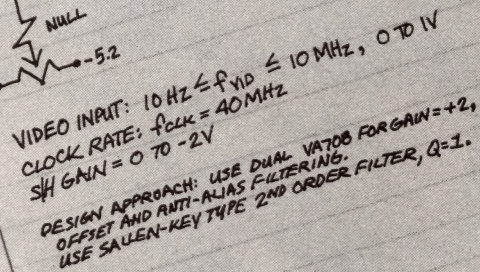 NULL
-5.2
VIDEO INPUT: 10 HZ ≤ fVID ≤ 10 MHz, 0 TO 1V
CLOCK RATE: fCLK = 40 MHz
S/H GAIN = 0 TO -2V
DESIGN APPROACH: USE DUAL VA708 FOR GAIN=+2,
OFFSET AND ANTI-ALIAS FILTERING.
USE SALLEN-KEY TYPE 2ND ORDER FILTER, Q=1.